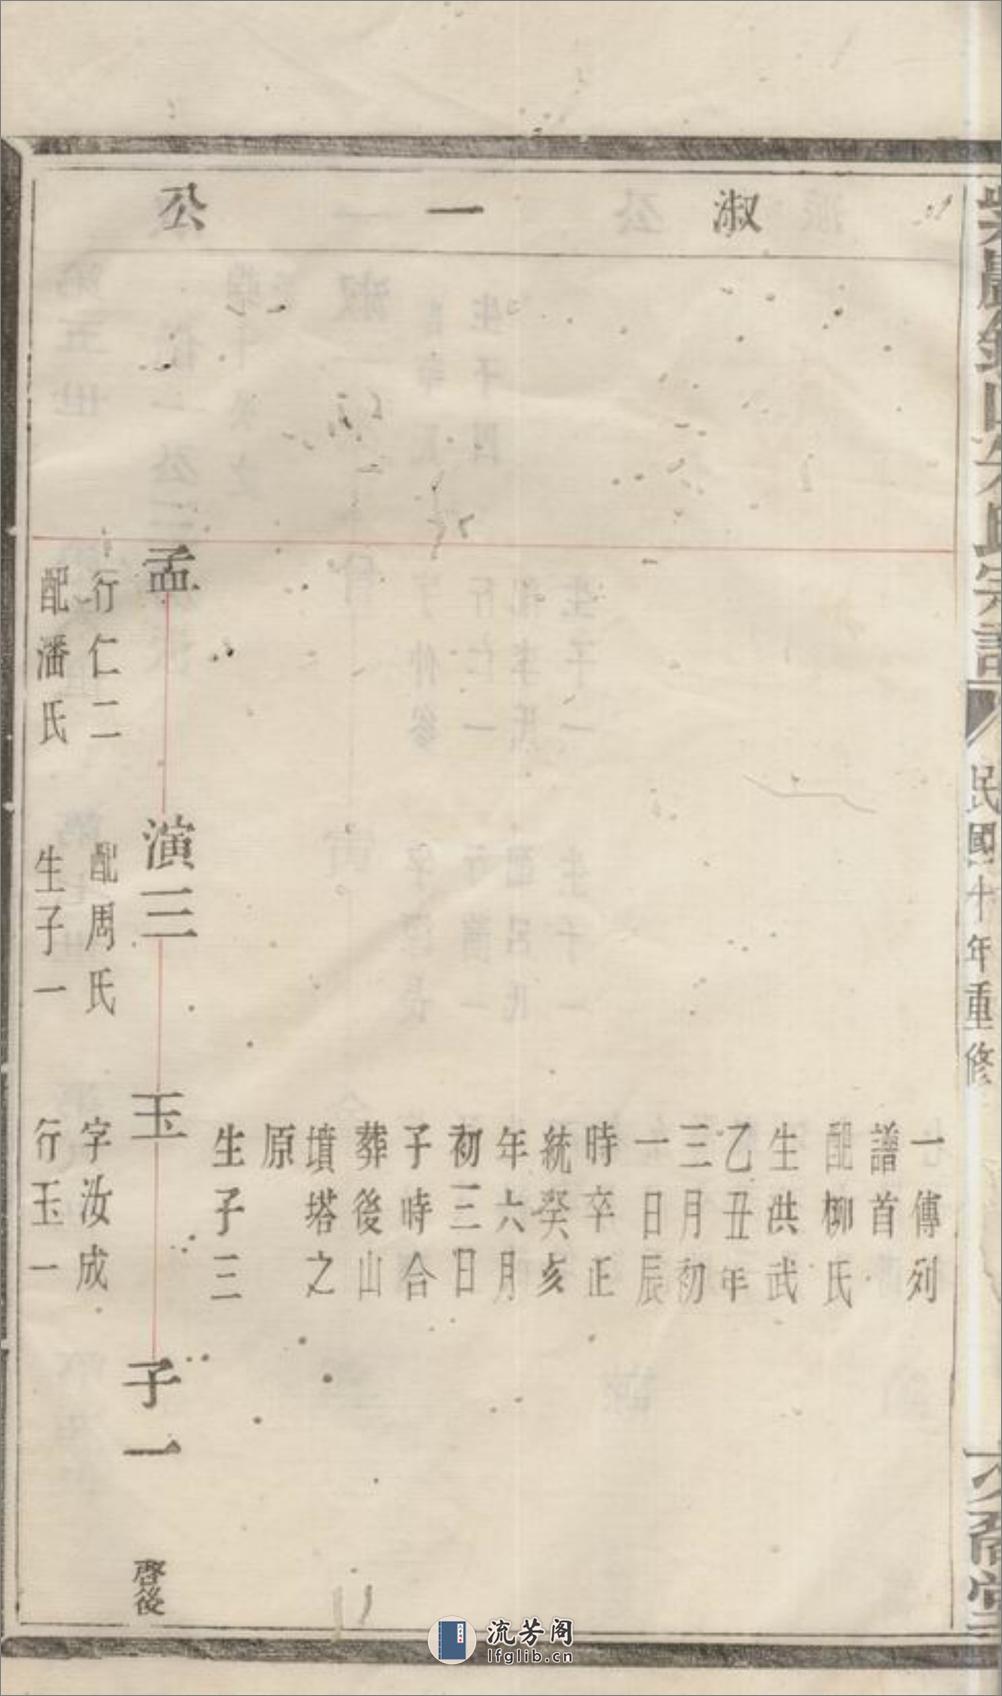 淑一公
民國二十年重修
一傳列
譜首
配柳氏
生洪武
乙丑年
三月初
一日辰
時卒正
統癸亥
年六月
初三日
子時合
葬後山
墳塔之
原
生子三
孟
行仁二
配潘氏
演三
配周氏
生子一
玉
字汝成
行玉一
子一
啓後
流芳阁
lfglib.cn